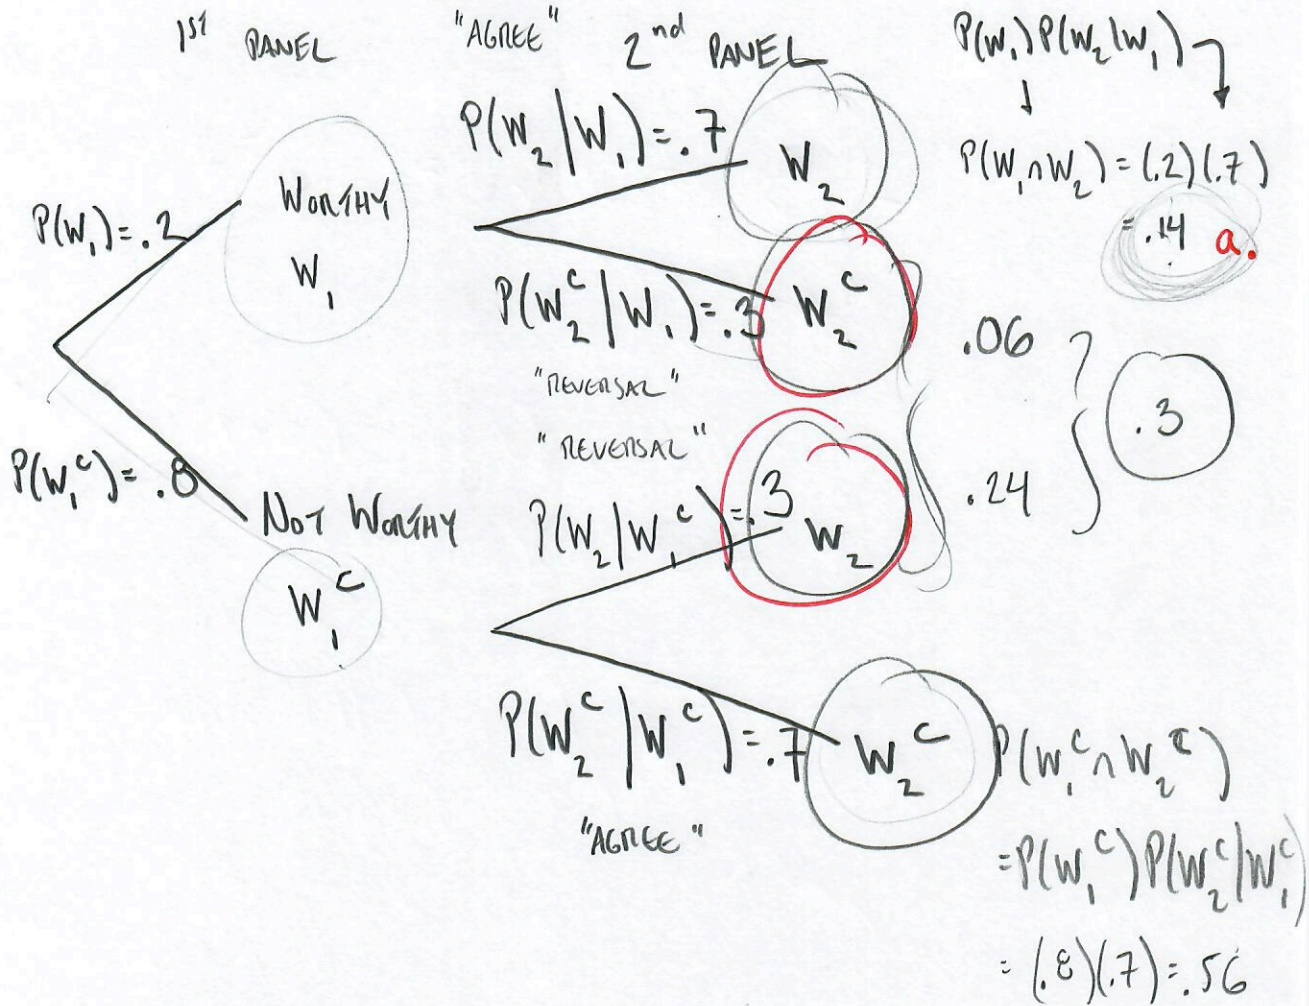 1ST PANEL
"AGREE"
2nd PANEL
P(W₁)P(W₂|W₁)
P(W₂|W₁)=.7
W₂
P(W₁∩W₂)=(.2)(.7)
=.14 a.
P(W₁)=.2
WORTHY
W₁
P(W₂ᶜ|W₁)=.3
W₂ᶜ
.06
"REVERSAL"
.3
"REVERSAL"
P(W₁ᶜ)=.8
NOT WORTHY
W₁ᶜ
P(W₂|W₁ᶜ)=.3
W₂
.24
P(W₂ᶜ|W₁ᶜ)=.7
W₂ᶜ
"AGREE"
P(W₁ᶜ∩W₂ᶜ)
=P(W₁ᶜ)P(W₂ᶜ|W₁ᶜ)
=(.8)(.7)=.56